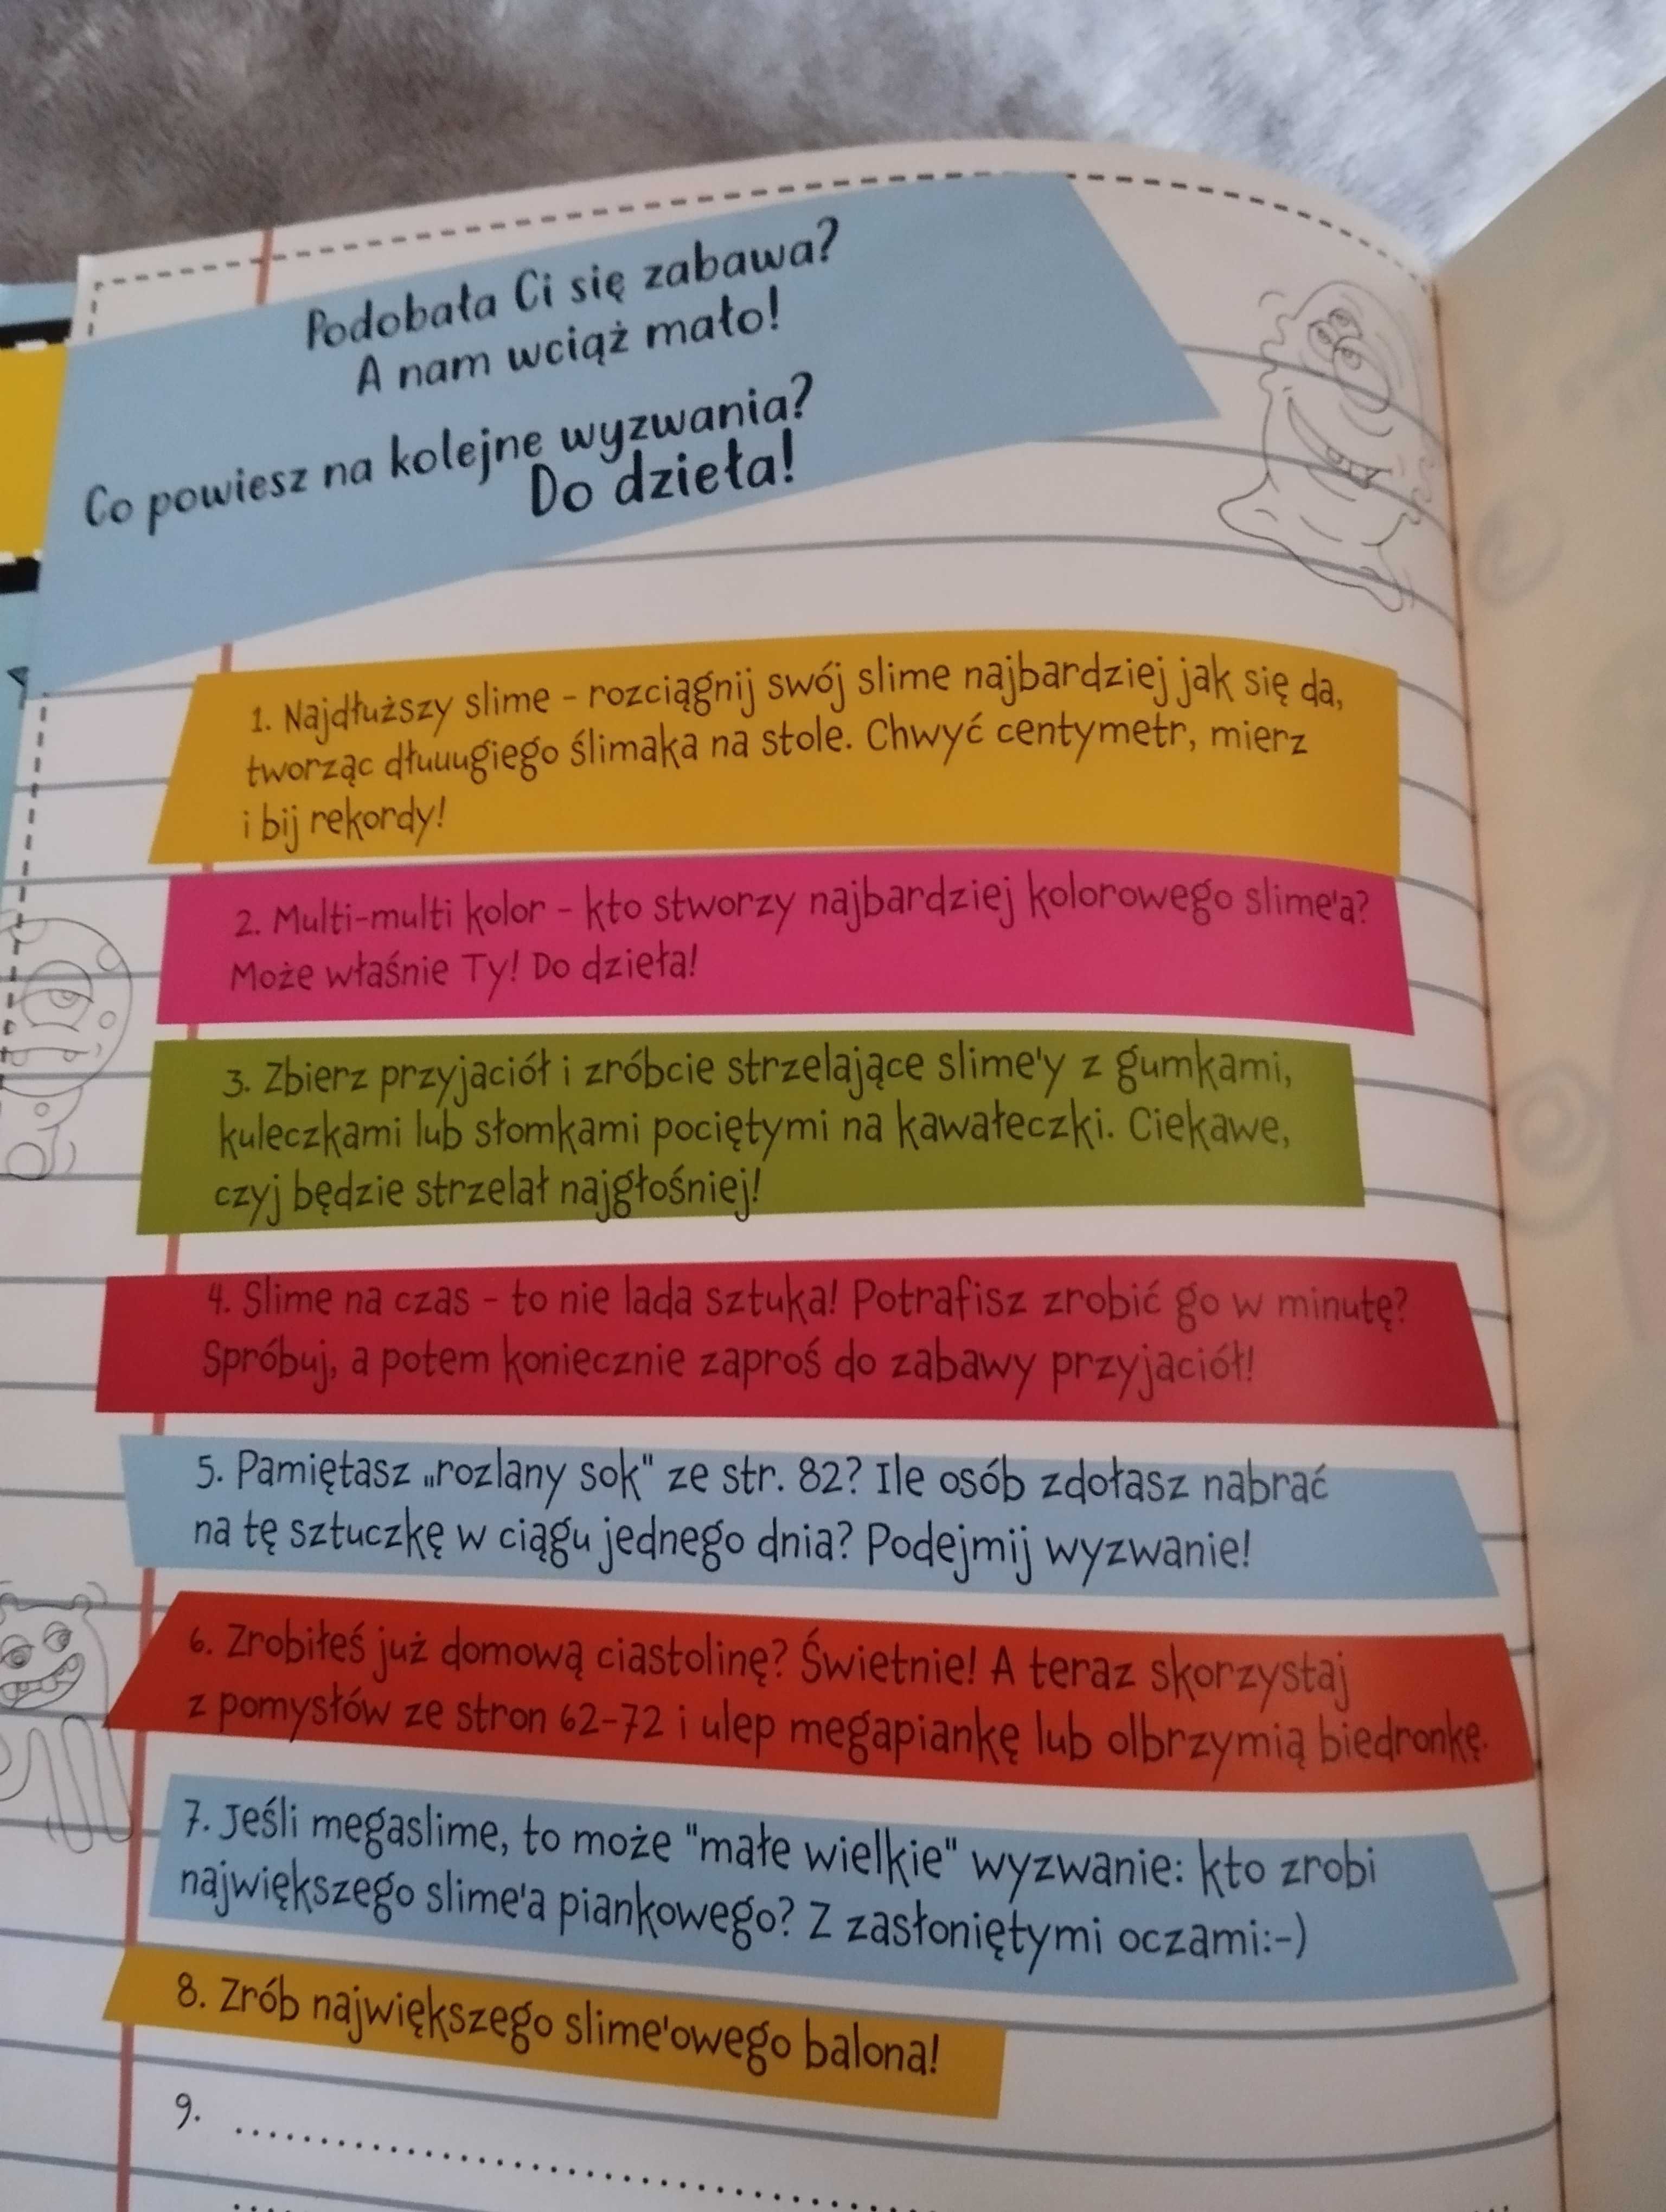 Podobała Ci się zabawa?
A nam wciąż mało!
Co powiesz na kolejne wyzwania?
Do dzieła!
1. Najdłuższy slime - rozciągnij swój slime najbardziej jak się da,
tworząc dłuuugiego ślimaka na stole. Chwyć centymetr, mierz
i bij rekordy!
2. Multi-multi kolor - kto stworzy najbardziej kolorowego slime'a?
Może właśnie Ty! Do dzieła!
3. Zbierz przyjaciół i zróbcie strzelające slime'y z gumkami,
kuleczkami lub słomkami pociętymi na kawałeczki. Ciekawe,
czyj będzie strzelał najgłośniej!
4. Slime na czas - to nie lada sztuka! Potrafisz zrobić go w minutę?
Spróbuj, a potem koniecznie zaproś do zabawy przyjaciół!
5. Pamiętasz „rozlany sok" ze str. 82? Ile osób zdołasz nabrać
na tę sztuczkę w ciągu jednego dnia? Podejmij wyzwanie!
6. Zrobiłeś już domową ciastolinę? Świetnie! A teraz skorzystaj
z pomysłów ze stron 62-72 i ulep megapiankę lub olbrzymią biedronkę.
7. Jeśli megaslime, to może "małe wielkie" wyzwanie: kto zrobi
największego slime'a piankowego? Z zasłoniętymi oczami:-)
8. Zrób największego slime'owego balona!
9.